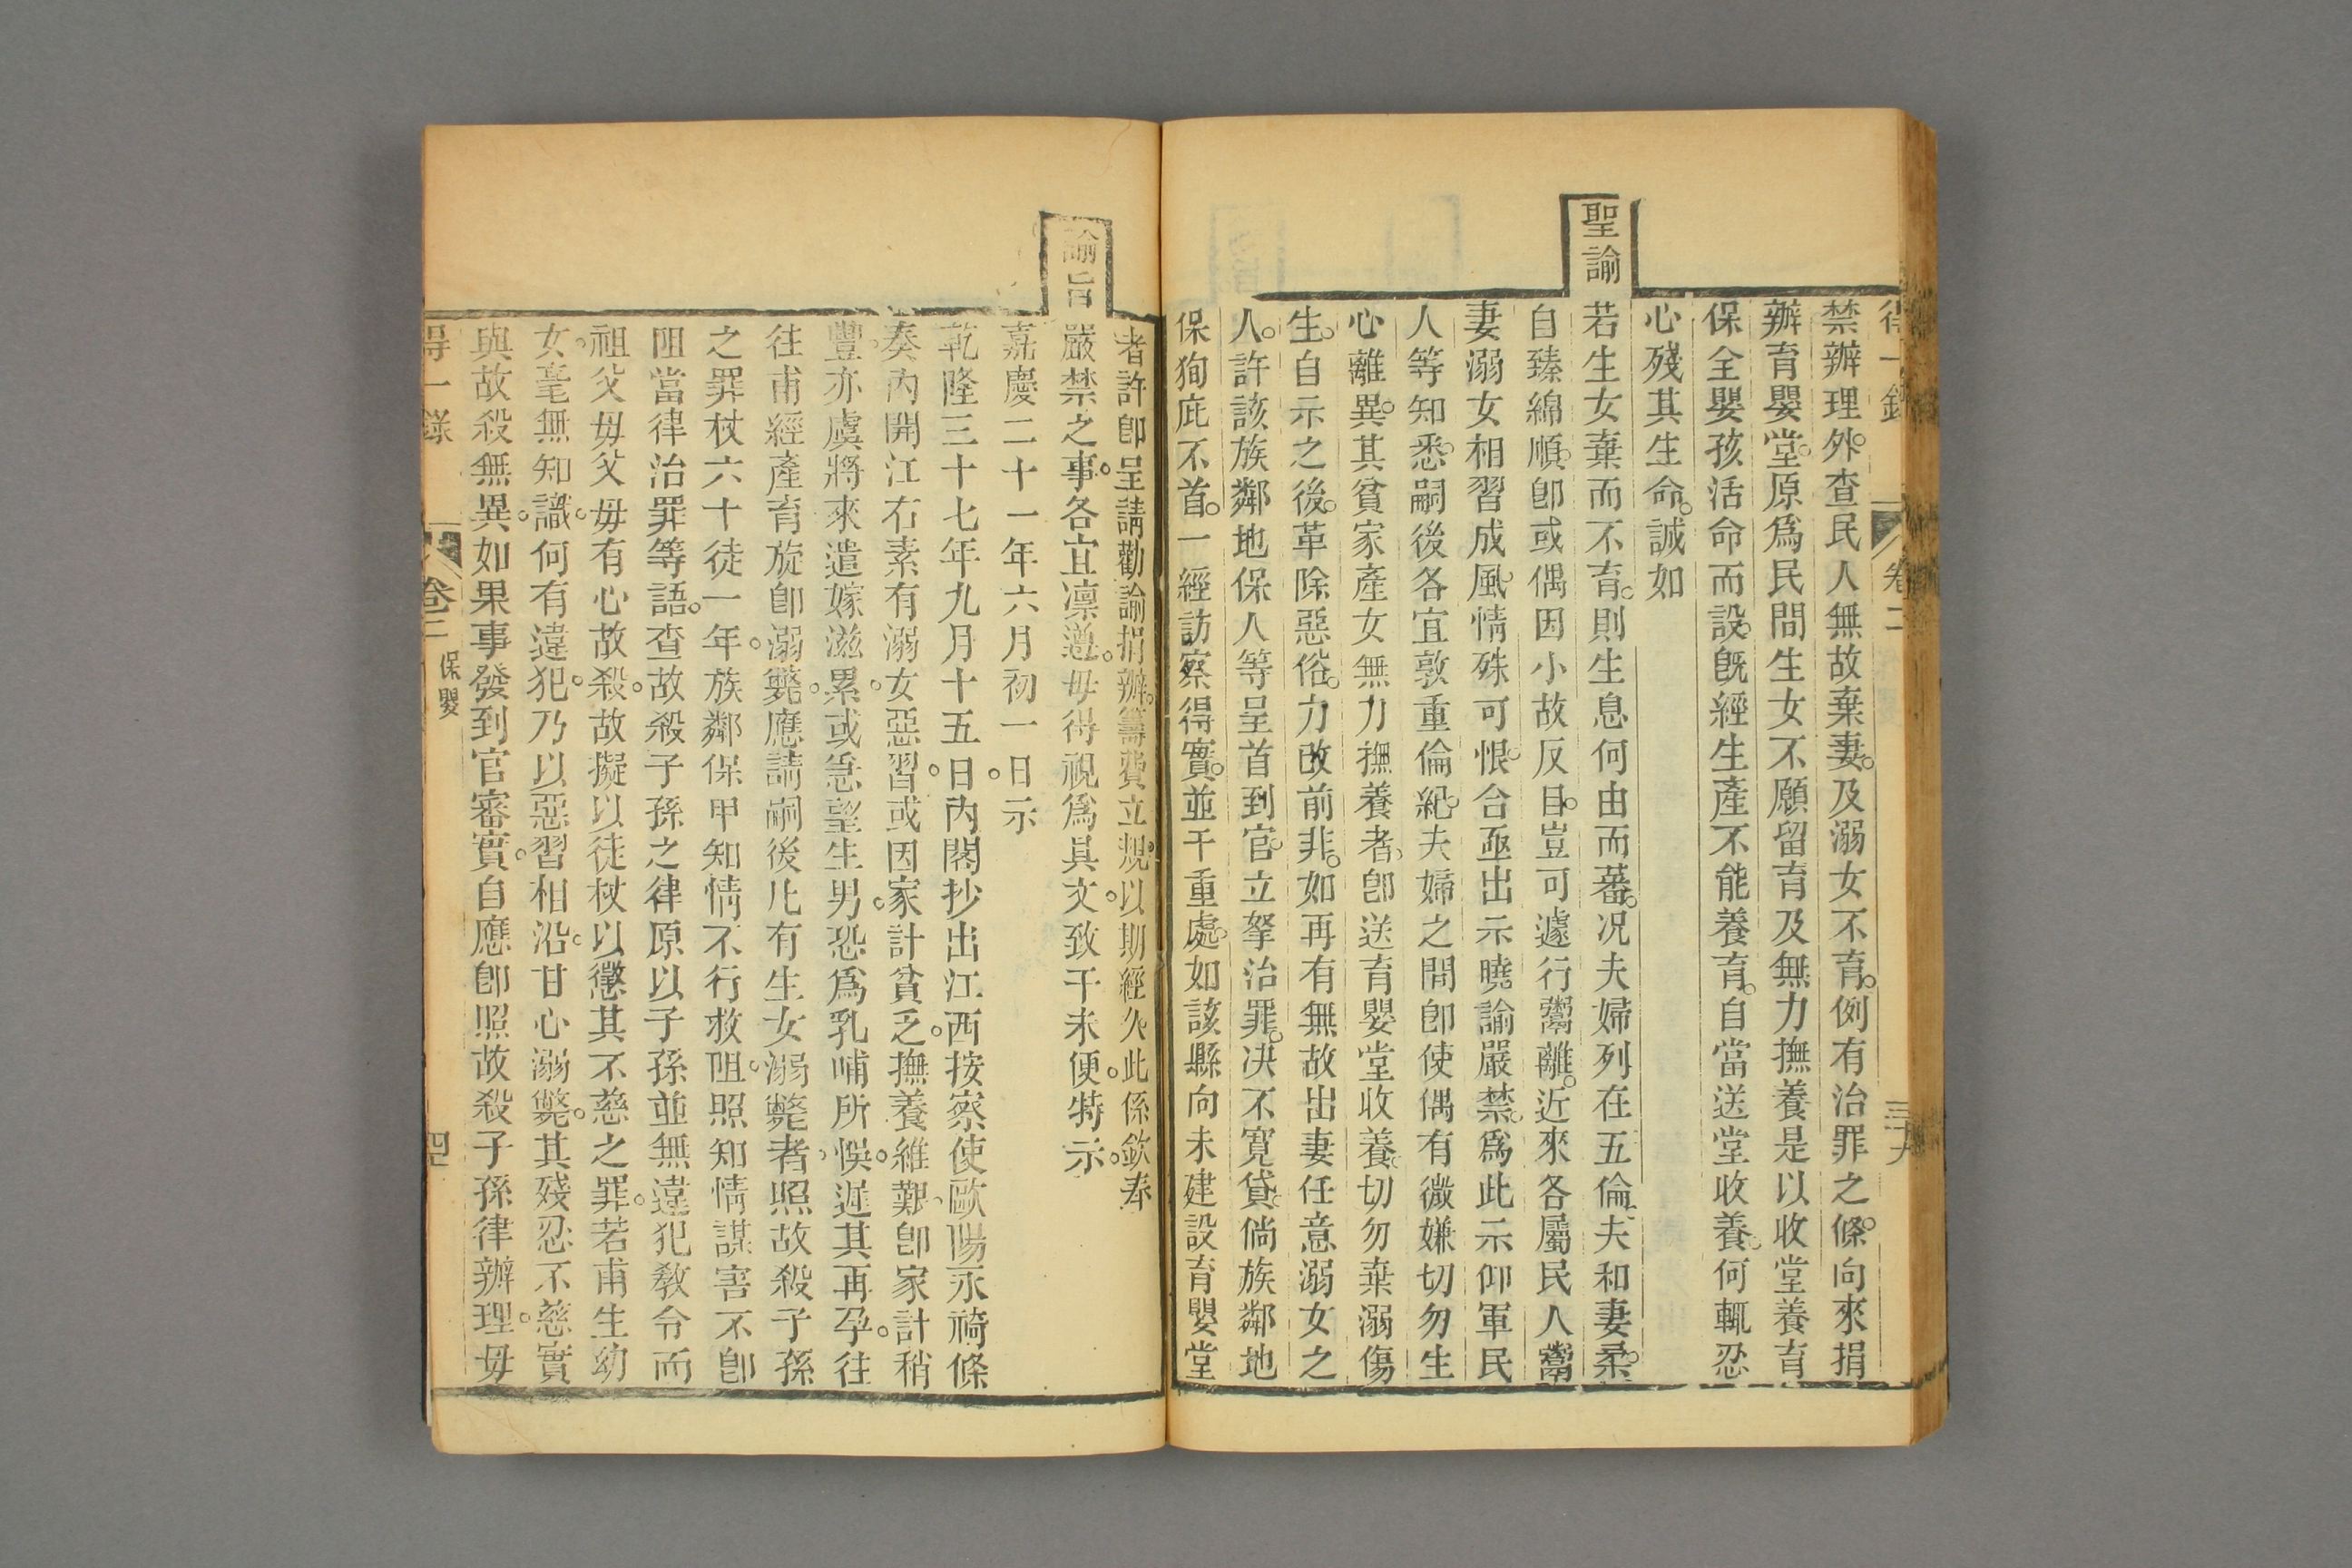 得一錄 卷二 三十九
禁辦理外查民人無故棄妻及溺女不育例有治罪之條向來捐
辦育嬰堂原爲民間生女不願留育及無力撫養是以收堂養育
保全嬰孩活命而設旣經生產不能養育自當送堂收養何輒忍
心殘其生命誠如
聖諭
若生女棄而不育則生息何由而蕃况夫婦列在五倫夫和妻柔
自臻綿順卽或偶因小故反目豈可遽行鬻離近來各屬民人鬻
妻溺女相習成風情殊可恨合亟出示曉諭嚴禁爲此示仰軍民
人等知悉嗣後各宜敦重倫紀夫婦之間卽使偶有微嫌切勿生
心離異其貧家產女無力撫養者卽送育嬰堂收養切勿棄溺傷
生自示之後革除惡俗力改前非如再有無故出妻任意溺女之
人許該族鄰地保人等呈首到官立拏治罪决不寬貸倘族鄰地
保狥庇不首一經訪察得實並干重處如該縣向未建設育嬰堂
者許卽呈請勸諭捐辦籌費立規以期經久此係欽奉
諭旨
嚴禁之事各宜凛遵毋得視爲具文致干未便特示
嘉慶二十一年六月初一日示
乾隆三十七年九月十五日內閣抄出江西按察使歐陽永裿條
奏內開江右素有溺女惡習或因家計貧乏撫養維艱卽家計稍
豐亦虞將來遣嫁滋累或急望生男恐爲乳哺所悞遲其再孕往
往甫經產育旋卽溺斃應請嗣後凡有生女溺斃者照故殺子孫
之罪杖六十徒一年族鄰保甲知情不行救阻照知情謀害不卽
阻當律治罪等語查故殺子孫之律原以子孫並無違犯敎令而
祖父毋父毋有心故殺故擬以徒杖以懲其不慈之罪若甫生幼
女毫無知識何有違犯乃以惡習相沿甘心溺斃其殘忍不慈實
與故殺無異如果事發到官審實自應卽照故殺子孫律辦理毋
得一錄 卷二 保嬰 四